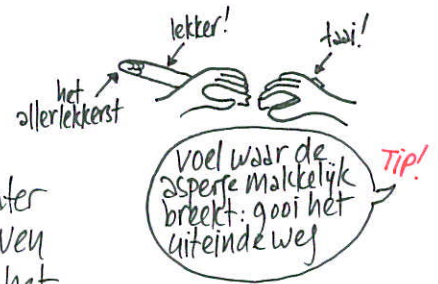 lekker!
taai!
het
allerlekkerst
voel waar de
asperge makkelijk
breekt: gooi het
uiteinde weg
Tip!
ter
ven
het